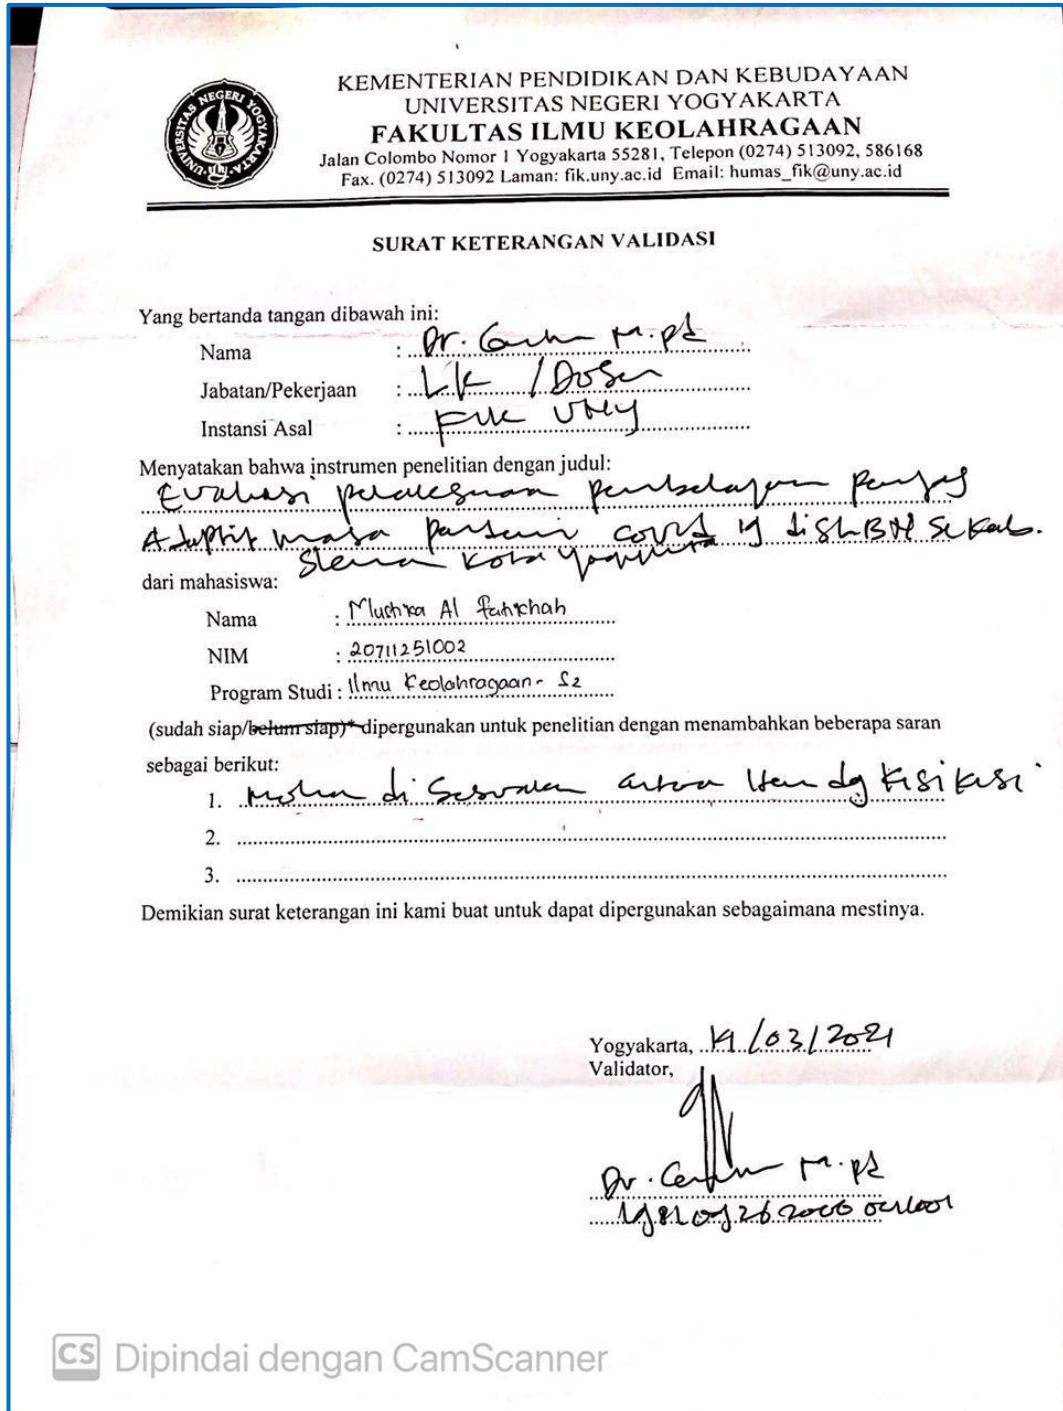 UNIVERSITAS NEGERI YOGYAKARTA
KEMENTERIAN PENDIDIKAN DAN KEBUDAYAAN
UNIVERSITAS NEGERI YOGYAKARTA
FAKULTAS ILMU KEOLAHRAGAAN
Jalan Colombo Nomor 1 Yogyakarta 55281, Telepon (0274) 513092, 586168
Fax. (0274) 513092 Laman: fik.uny.ac.id Email: humas_fik@uny.ac.id
SURAT KETERANGAN VALIDASI
Yang bertanda tangan dibawah ini:
Nama : Dr. M.pd
Jabatan/Pekerjaan : LK / Dosen
Instansi Asal : FIK UNY
Menyatakan bahwa instrumen penelitian dengan judul:
Evaluasi pelaksanaan pembelajaran penjas
Adaptif masa pandemi covid 19 di SLBN se Kab.
Sleman Kota Yogyakarta
dari mahasiswa:
Nama : Mustika Al
NIM : 20711251002
Program Studi : Ilmu Keolahragaan - S2
(sudah siap/belum siap)* dipergunakan untuk penelitian dengan menambahkan beberapa saran
sebagai berikut:
1. di Sesuaikan antara Item dg Kisi kisi
2.
3.
Demikian surat keterangan ini kami buat untuk dapat dipergunakan sebagaimana mestinya.
Yogyakarta, /03/2021
Validator,
Dr. M.pd
CS Dipindai dengan CamScanner